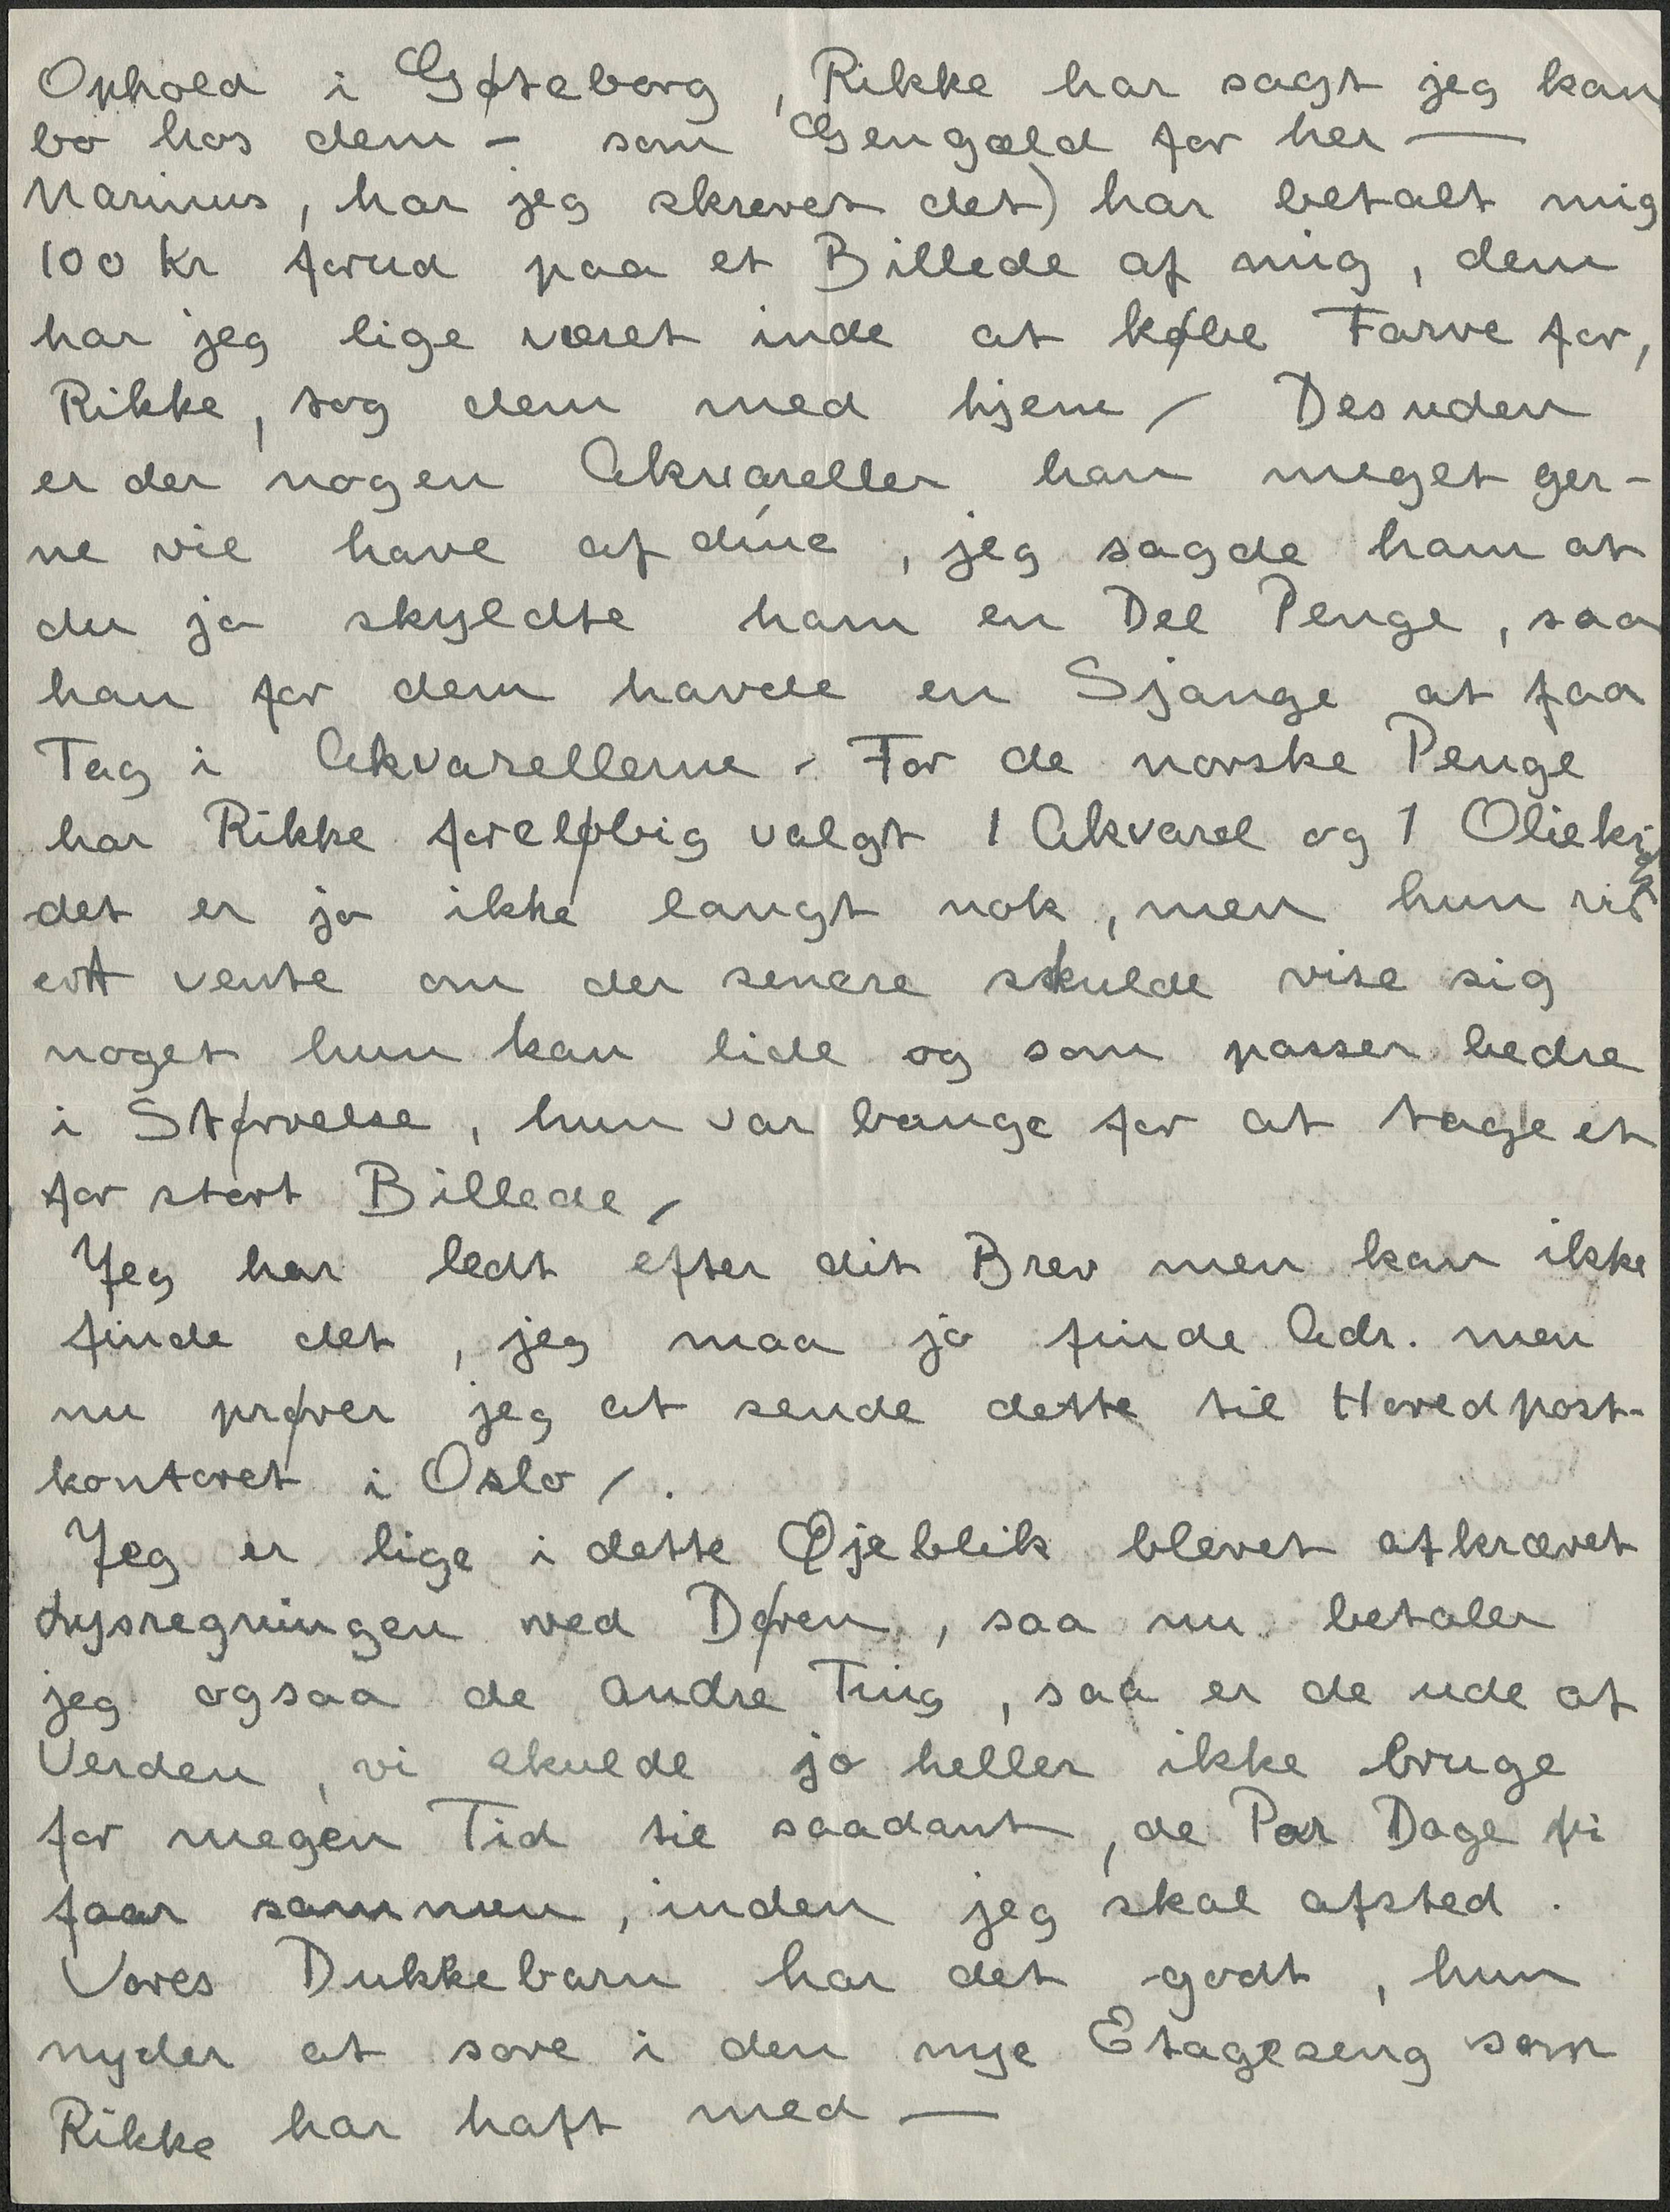 Ophold i Gøteborg, Rikke har sagt jeg kan
bo hos dem – som Gengæld for her —
Marinus, har jeg skrevet det) har betalt mig
100 Kr forud paa et Billede af mig, dem
har jeg lige været inde at købe Farve for,
Rikke, tog dem med hjem / Desuden
er der nogen Akvareller han meget ger-
ne vil have af dine, jeg sagde ham at
du jo skyldte ham en Del Penge, saa
han for dem havde en Sjange at faa
Tag i Akvarellerne - For de norske Penge
har Rikke foreløbig valgt 1 Akvarel og 1 Olieki
det er jo ikke langt nok, men hun vil
evt vente om der senere skulde vise sig
noget hun kan lide og som passer bedre
i Størrelse, hun var bange for at tage et
for stort Billede /
Jeg har ledt efter dit Brev men kan ikke
finde det, jeg maa jo finde Adr. men
nu prøver jeg at sende dette til Hovedpost-
kontoret i Oslo / .
Jeg er lige i dette Øjeblik blevet afkrævet
Lysregningen ved Døren, saa nu betaler
jeg ogsaa de andre Ting, saa er de ude af
Verden, vi skulde jo heller ikke bruge
for megen Tid til saadant, de Par Dage vi
faar sammen, inden jeg skal afsted.
Vores Dukkebarn har det godt, hun
nyder at sove i den nye Etageseng som
Rikke har haft med —